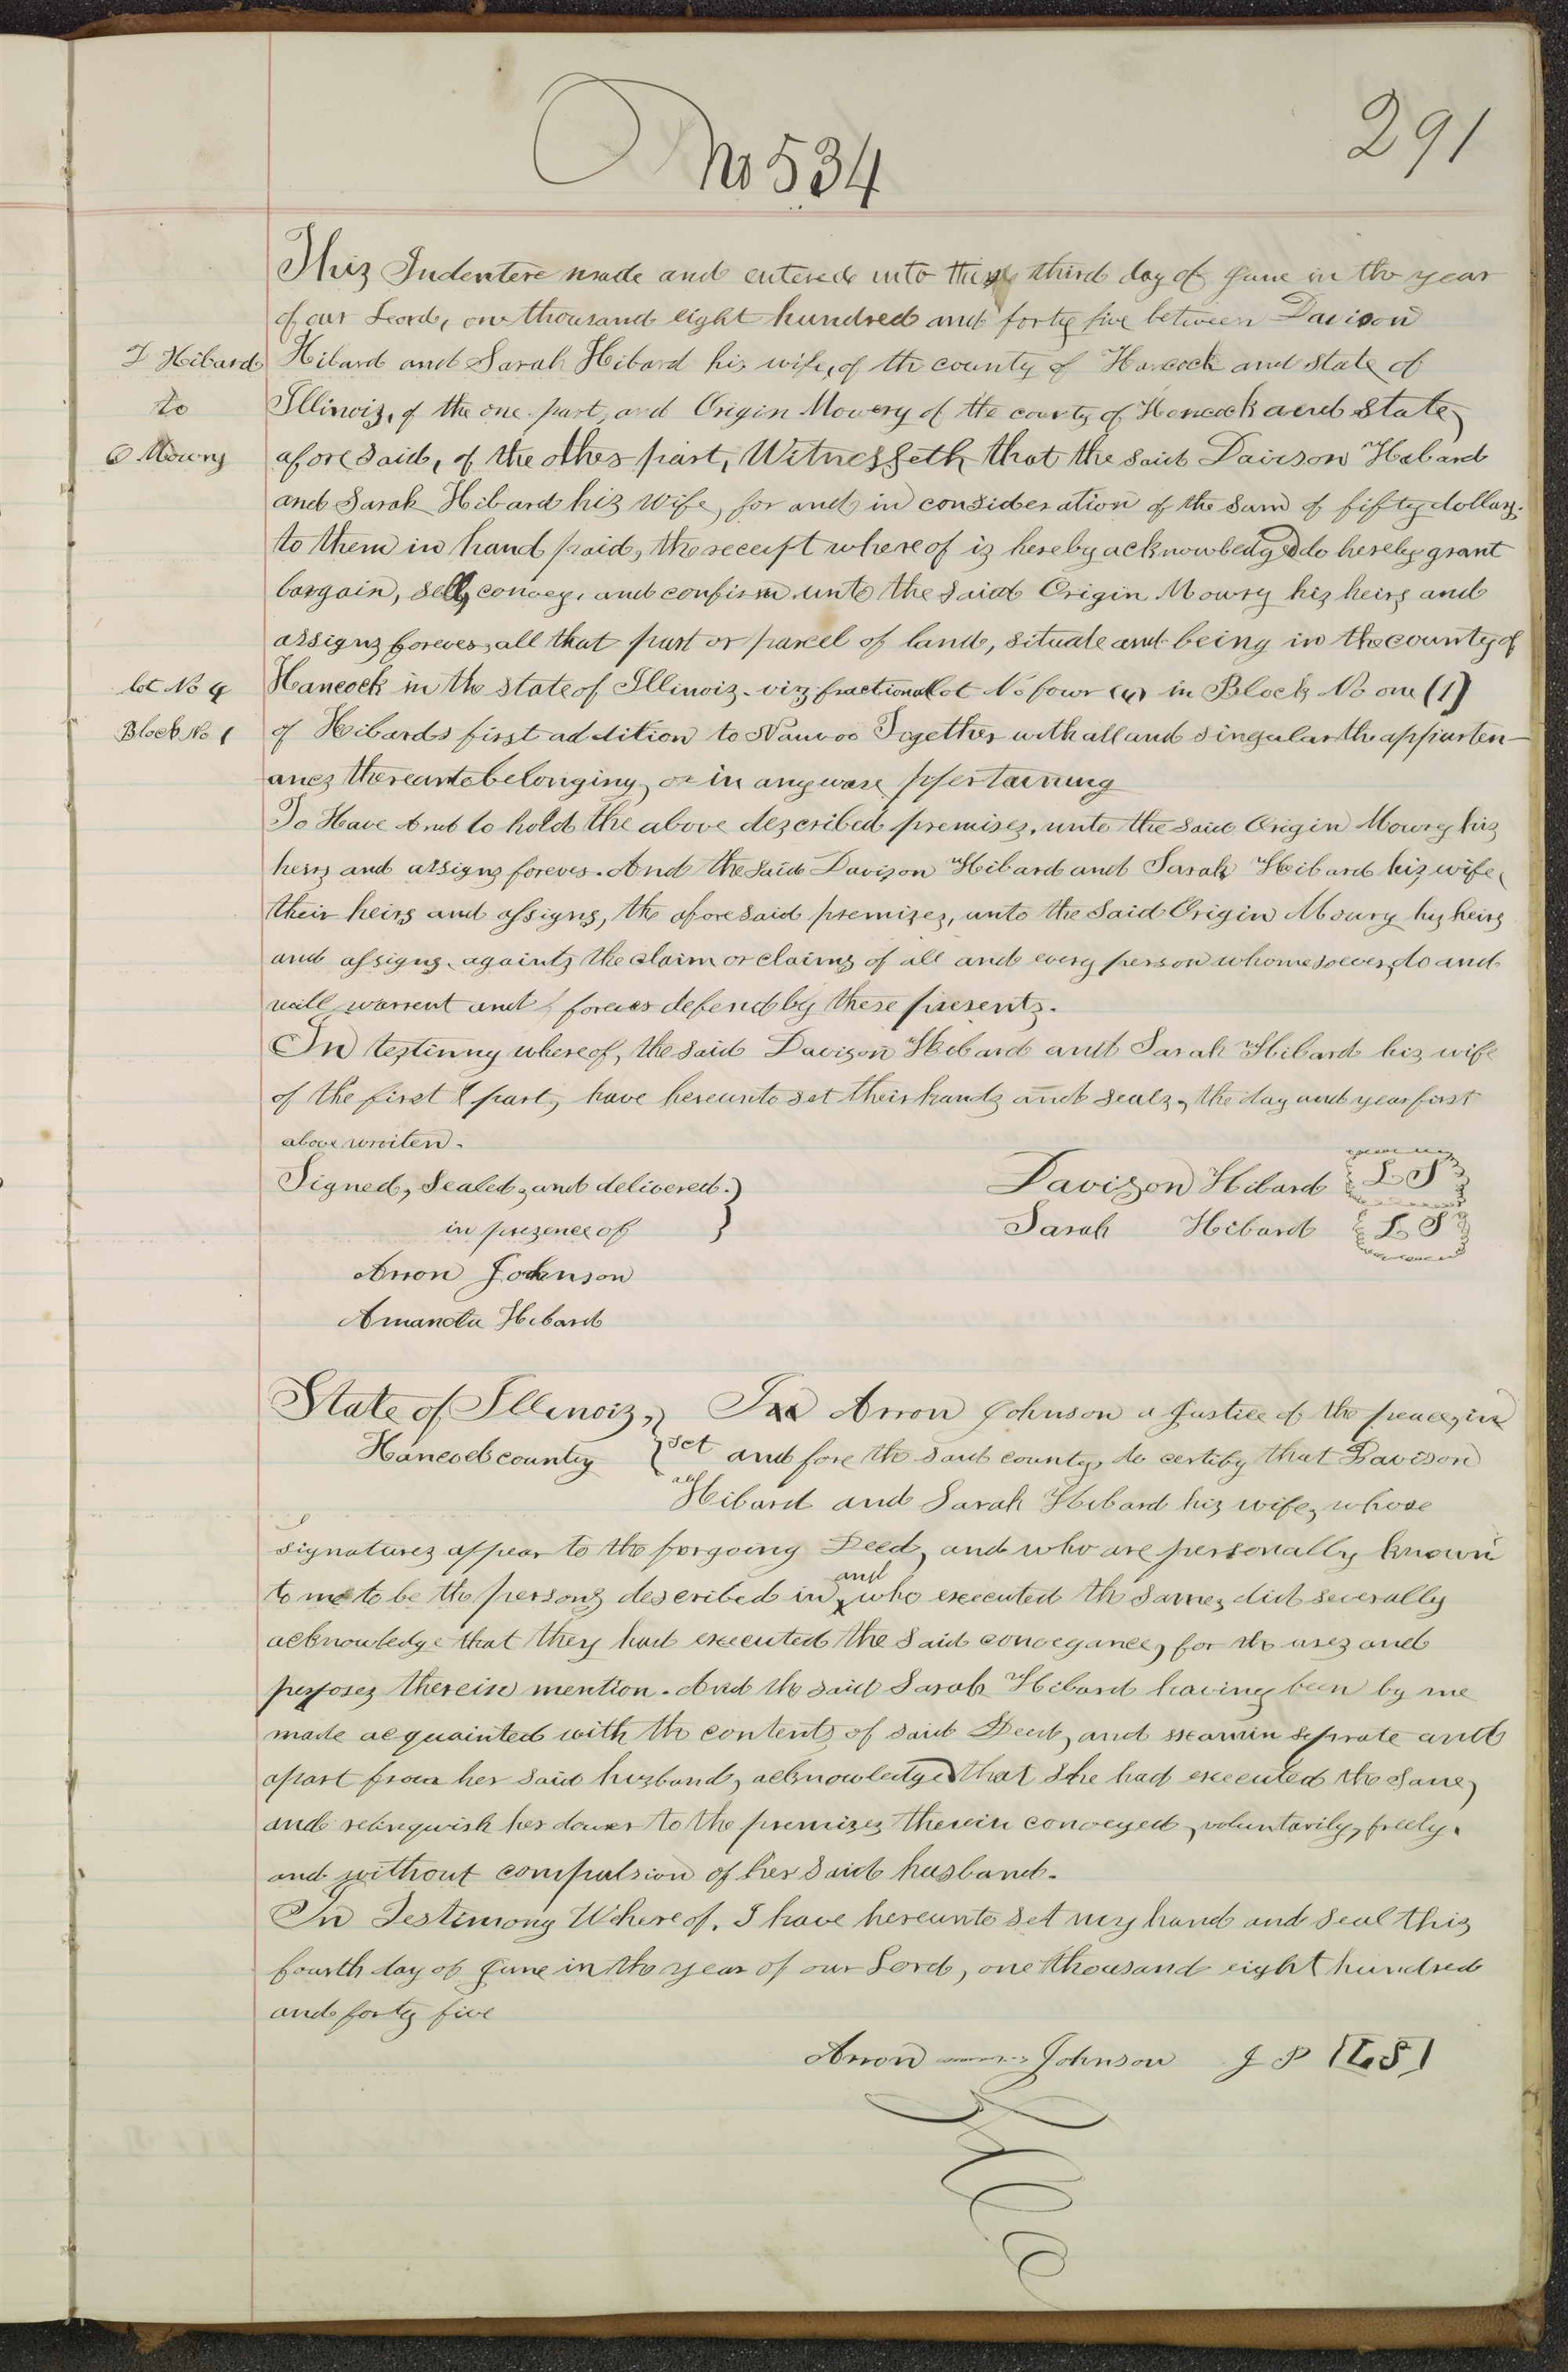 291
No 534
This Indentere made and entered into this third day of June in the year
of our Leord, one thousand eight hundred and forty five between Davison
D Hibard Hibard and Sarah Hibard his wife, of the county of Hancock and state of
to Illinois, of the one part, and Origin Mowery of the county of Hancock and State
O Mowry afore said, of the other part, Witnesseth that the said Davison Hibard
and Sarah Hibard his wife, for and in consideration of the sum of fifty dollars.
to them in hand paid, the receipt where of is hereby acknowledged do hereby grant
bargain, sell, convey, and confirm unto the said Origin Mowry his heirs and
assigns forever, all that part or parcel of land, situate and being in the county of
lot No 4 Hancock in the state of Illinois. viz fractional lot No four (4) in Block No one (1)
Block No 1 of Hibards first addition to Nauvoo Together with all and singular the appurten-
ances thereunto belonging, or in any wise ppertaining
To Have And to hold the above described premises, unto the said Origin Mowry his
heirs and assigns forever. And the said Davison Hibard and Sarah Hibard his wife,
their heirs and assigns, the afore said premises, unto the said Origin Mowry his heirs
and assigns, againts the claim or claims of all and every person whomesoever, do and
will warrent and forever defend by these presents.
In testimny whereof, the said Davison Hibard and Sarah Hibard his wife
of the first & part, have hereunto set their hands and seals, the day and year first
above wrriten.
Signed, Sealed, and delivered.} Davison Hibard L S
in presence of Sarah Hibard L S
Arron Johnson
Amanda Hibard
State of Illinois,} I Arron Johnson a Justice of the peace, in
Hancock county {sct and fore the said county, do certify that Davison
Hibard and Sarah Hibard his wife, whose
signatures appear to the forgoing Deed, and who are personally known
to me to be the persons described in and who executed the same, did severally
acknowledge that they had executed the said conveyance, for the uses and
purposes therein mention. And the said Sarah Hibard having been by me
made acquainted with the contents of said Deed, and examin seprate and
apart from her said husband, acknowledged that she had executed the same,
and relinquish her dower to the premises therein conveyed, voluntarily, freely.
and without compulsion of her said husband.
In Testimony Whereof, I have hereunto set my hand and seal this
fourth day of June in the year of our Lord, one thousand eight hundred
and forty five
Arron Johnson J P [L S]